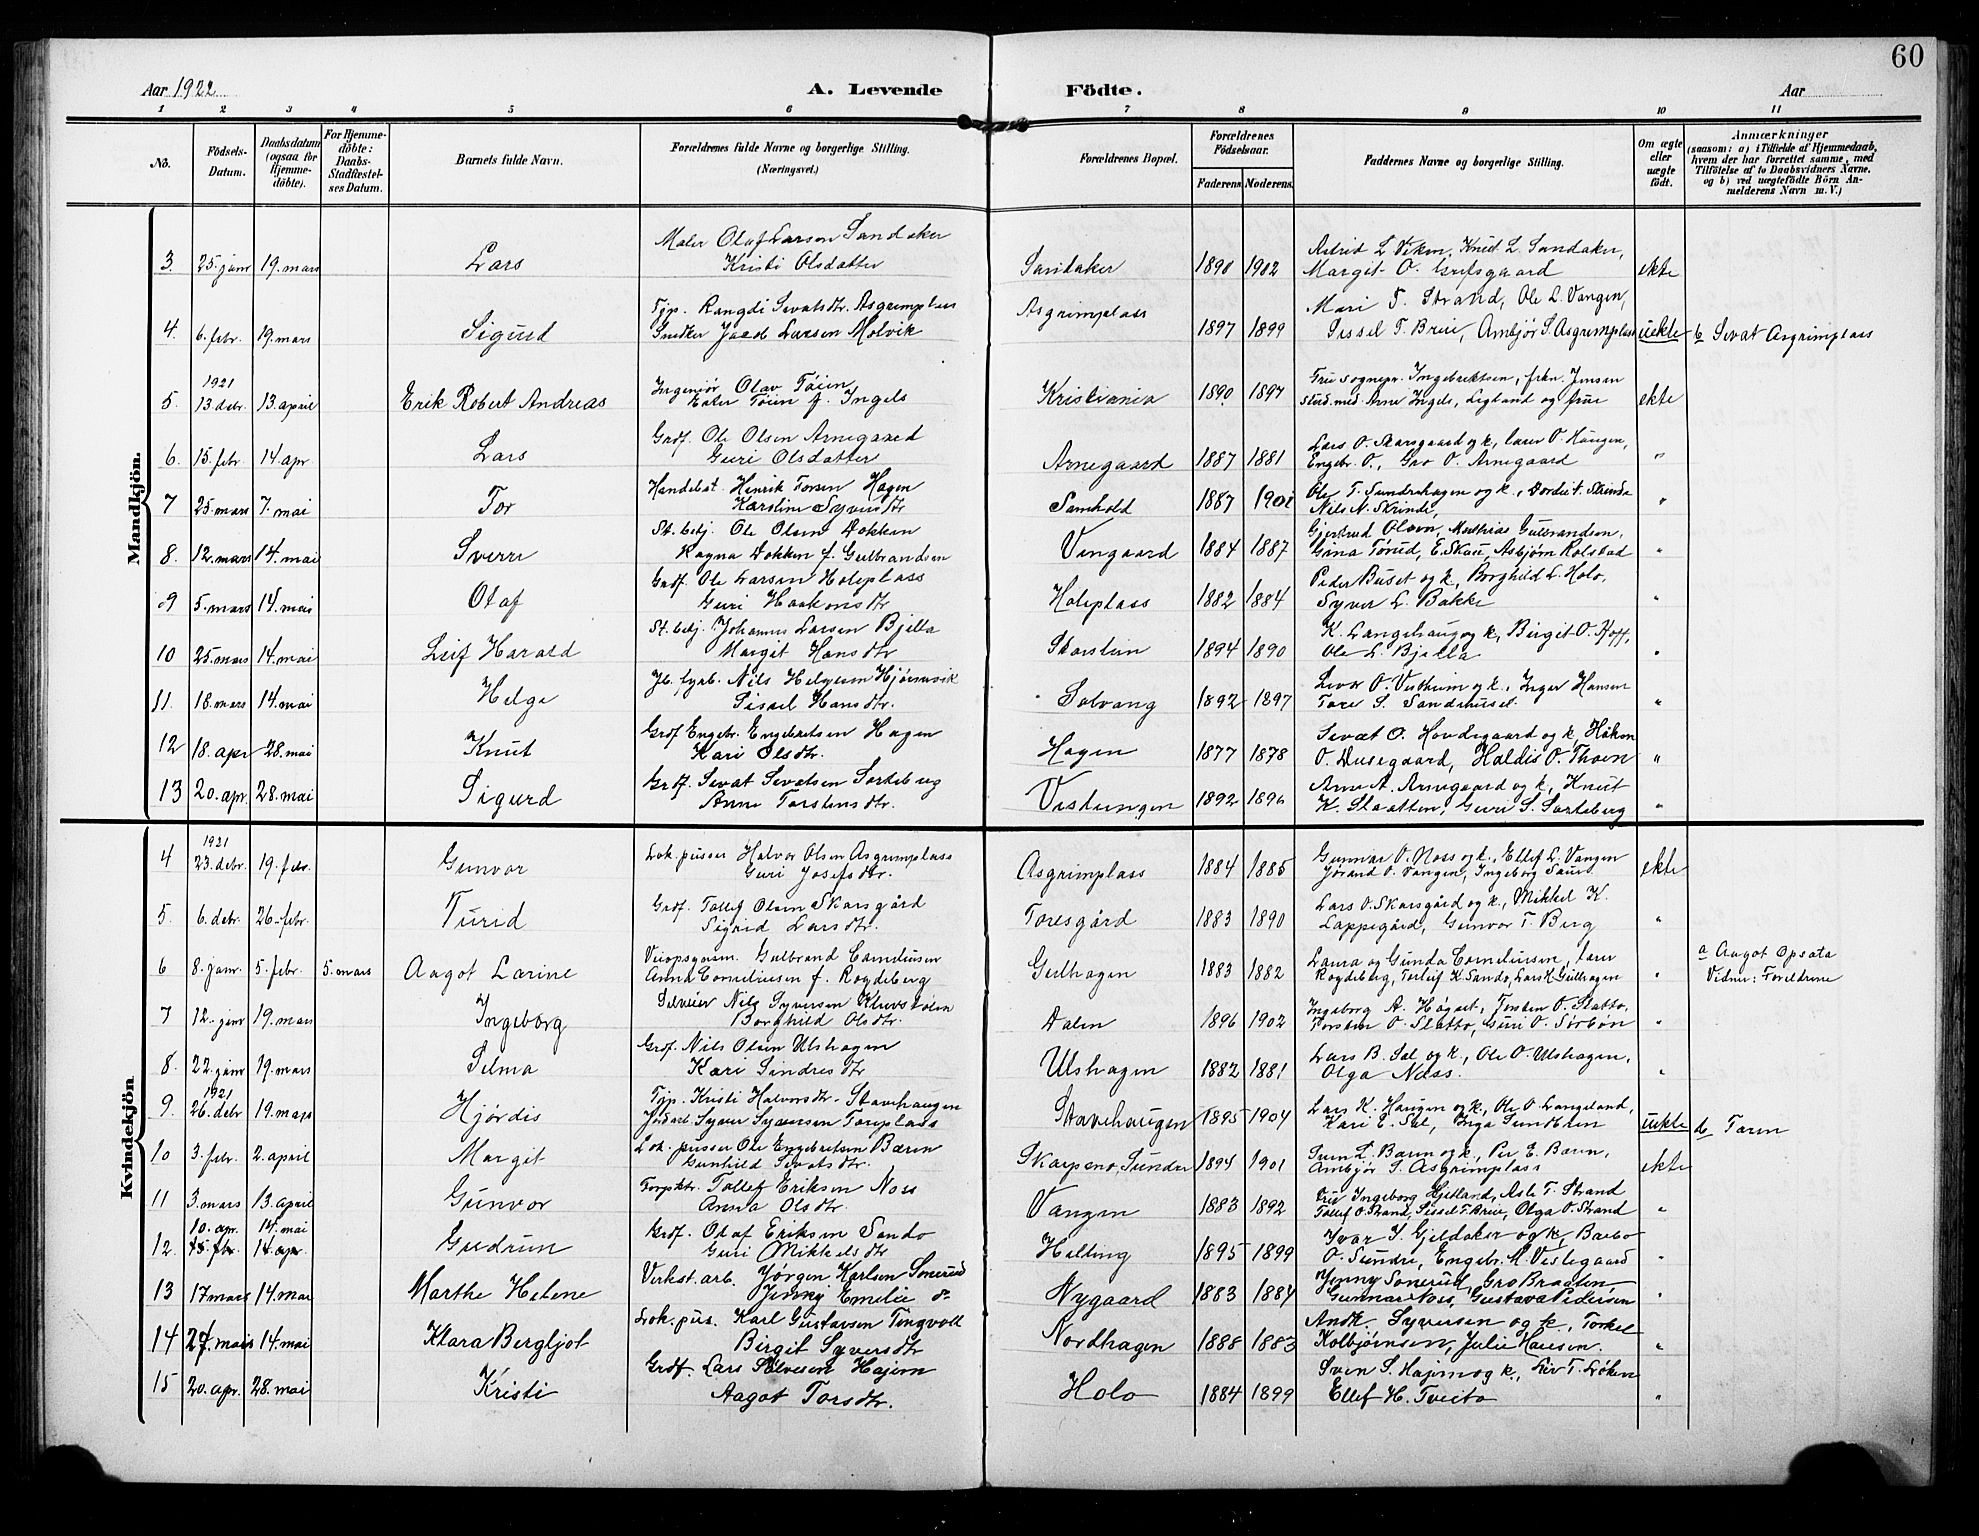 60
Aar 1922
A. Levende Födte.
Aar
1 2 3 4 5 6 7 8 9 10 11
No.
Födsels-Datum.
Daabsdatum (ogsaa for Hjemme-döbte).
For Hjemme-döbte: Daabs-Stadfæstel-ses Datum.
Barnets fulde Navn.
Forældrenes fulde Navne og borgerlige Stilling. (Næringsvei.)
Forældrenes Bopæl.
Forældrenes Födselsaar.
Faderens. Moderens.
Faddernes Navne og borgerlige Stilling.
Om ægte eller uægte födt.
Anmærkninger (saasom: a) i Tilfælde af Hjemmedaab, hvem der har forrettet samme, med Tilföielse af to Daabsvidners Navne, og b) ved uægtefödte Börn An-melderens Navn m. V.)
Mandkjön.
Maler Olaf Larsen Sandaker Astrid L Viken, Knud L. Sandaker,
3. 25. janr 19. mars Lars Kristi Olsdatter Sandaker 1898 1902 Margit O. Grefsgaard ekte
Tjp. Rangdi Sevatsdtr. Asgrimplass Asgrimplass Mari T. Strand, Ole L. Vangen,
4. 6. febr. 19. mars Sigurd Snedker Larsen Molvik 1897 1899 Sissel T. Breie, Ambjør S. Asgrimplass uekte b Sevat Asgrimplass
1921 Ingeniør Olav Töien Fru sognepr. Ingebrektsen, frkn. Jensen
5. 13. debr. 13. april Erik Robert Andreas Ester Töien f. Ingels Kristiania 1890 1897 stud. med. Arne Ingels, Ligland og frue ekte
Grdf. Ole Olsen Arnegaard Lars O. Skarsgaard og k, lærer O. Haugen,
6. 15. febr. 14. apr. Lars Guri Olsdatter Arnegaard 1887 1881 Engebr. O., Gro O. Arnegaard "
Handelsb. Henrik Torsen Hagen Ole T. Sundrehagen og k., Dordei T. Skrinde
7 25. mars 7. mai Tor Karoline Syversdtr Samhold 1887 1901 Nils N. Skrinde, "
St. betj. Ole Olsen Dokken Gjertrud Olsen, Mathias Gulbrandsen,
8. 12. mars 14. mai Sverre Ragna Dokken f. Gulbrandsen Vingaard 1884 1887 Gina Tørud, E. Skau, Asbjørn Rolstad "
Grdf. Ole Larsen Holeplass Peder Buset og k, Borghild L. Holo,
9 5. mars 14. mai Olaf Guri Haakonsdtr Holeplass 1882 1884 Syver L. Bakke "
St. betj. Johannes Larsen Bjella K. Langehaug og k, Birgit O. Hoff,
10 25. mars 14. mai Leif Harald Margit Hansdtr Storstein 1894 1890 Ole L. Bjella "
Jb. fyrb. Nils Helgesen Hjørnevik Sevar O. Vestheim og k., Inger Hansen
11. 18. mars 14. mai Helge Sissel Hansdtr. Solvang 1892 1897 Tore S. Sandehusel. "
Grdf Engebr. Engebretsen Hagen Sevat O. Hovdegaard og k, Håkon
12 18. apr 28. mai Knut Kari Olsdtr. Hagen 1877 1878 O. Dusegaard, Haldis O. Thoen "
Grdf. Sevat Sevatsen Sarteberg Arne A. Arnegaard og k, Knut
13 20. apr. 28. mai Sigurd Anne Torstensdtr. Vestungen 1892 1896 K. Slaatten, Guri S. Sarteberg "
Kvindekjön
1921 Lok. pusser Halvor Olsen Asgrimplass Gunnar O. Noss og k., Ellef L. Vangen
4 23. debr. 19. febr. Gunvor Guri Josefsdtr. Asgrimplass 1884 1885 Jørand O. Vangen, Ingeborg ekte
Grdf. Tollef Olsen Skarsgård Lars O. Skarsgård og k., Mikkel K.
5. 6. debr. 26. febr. Turid Sigrid Larsdtr. Toresgård 1883 1890 Lappegård, Gunvor T. Berg "
Gulbrand Corneliusen Laura og Gunda Corneliusen, Lars a Aagot Opsata
6 8. janr. 5. febr. 5. mars Aagot Larine Anna Corneliusen f. Rogdeberg Gulhagen 1883 1882 Rogdeberg, Torleif K. Sando, Lars K. Gulhagen " Vidner: Foreldrene
Nils Syversen Klevstolen Ingeborg A. Høgset, Torsten O. Slatto,
7 12. janr 19. mars Ingeborg Borghild Olsdtr. Dalen 1896 1902 Torsten O. Slatto, Guri O. Sørbøn "
Grdf. Nils Olsen Ulshagen Lars B. Sal og k., Ole O. Ulshagen,
8. 22. janr 19. mars Selma Kari Sindresdtr Ulshagen 1882 1881 Olga Næss. "
1921 Tjp. Kristi Halvorsdtr. Stavehaugen Lars K. Haugen og k., Ole O. Langeland,
9 26. debr 19. mars Hjørdis Jordarb. Syver Syversen Toreplass Stavehaugen 1895 1904 Kari E. Sal, Inga Sundhlen uekte do Faren
Lok. pusser Ole Engebretsen Bæren Sven L. Bæren og k., Per E. Bæren,
10 3. febr. 2. april Margit Gunhild Sevatsdtr. Skarpeno, Sundre 1894 1901 Ambjør S. Asgrimplass ekte
Forpktr. Tollef Eriksen Noss Fru Ingeborg Hjetland, Asle T. Strand
11 3. mars 13. april Gunvor Anna Olsdtr. Vangen 1883 1892 Tollef O. Strand, Sissel T. Breie, Olga O. Strand "
10. apr. 14. mai Grdf. Olaf Eriksen Sando Ivar S. Gjeldaker og k, Barbo
12. 15. febr 14. apr. Gudrun Guri Mikkelsdtr Helling 1895 1899 O. Sundre, Engebr. M. Vestegaard "
Verkst. arb. Jørgen Karlsen Sonerud Jenny Sonerud, Gro Braaten
13 17 mars 14. mai Marthe Helene Jenny Emelie do Nygaard 1883 1884 Gunnar Noss, Gustava Pedersen "
Lok. pus. Karl Gustavsen Tingvoll Andr. Syversen og k., Torkel
14 27. mars 14. mai Klara Bergljot Birgit Syversdtr Nordhagen 1888 1883 Kolbjørnsen, Julie Hansen. "
Grdf. Lars Sølvesen Hajem Sven S. Hajem og k., Liv T. Løken
15 20. apr. 28. mai Kristi Aagot Torsdtr. Holo 1884 1899 Ellef H. Tveito "